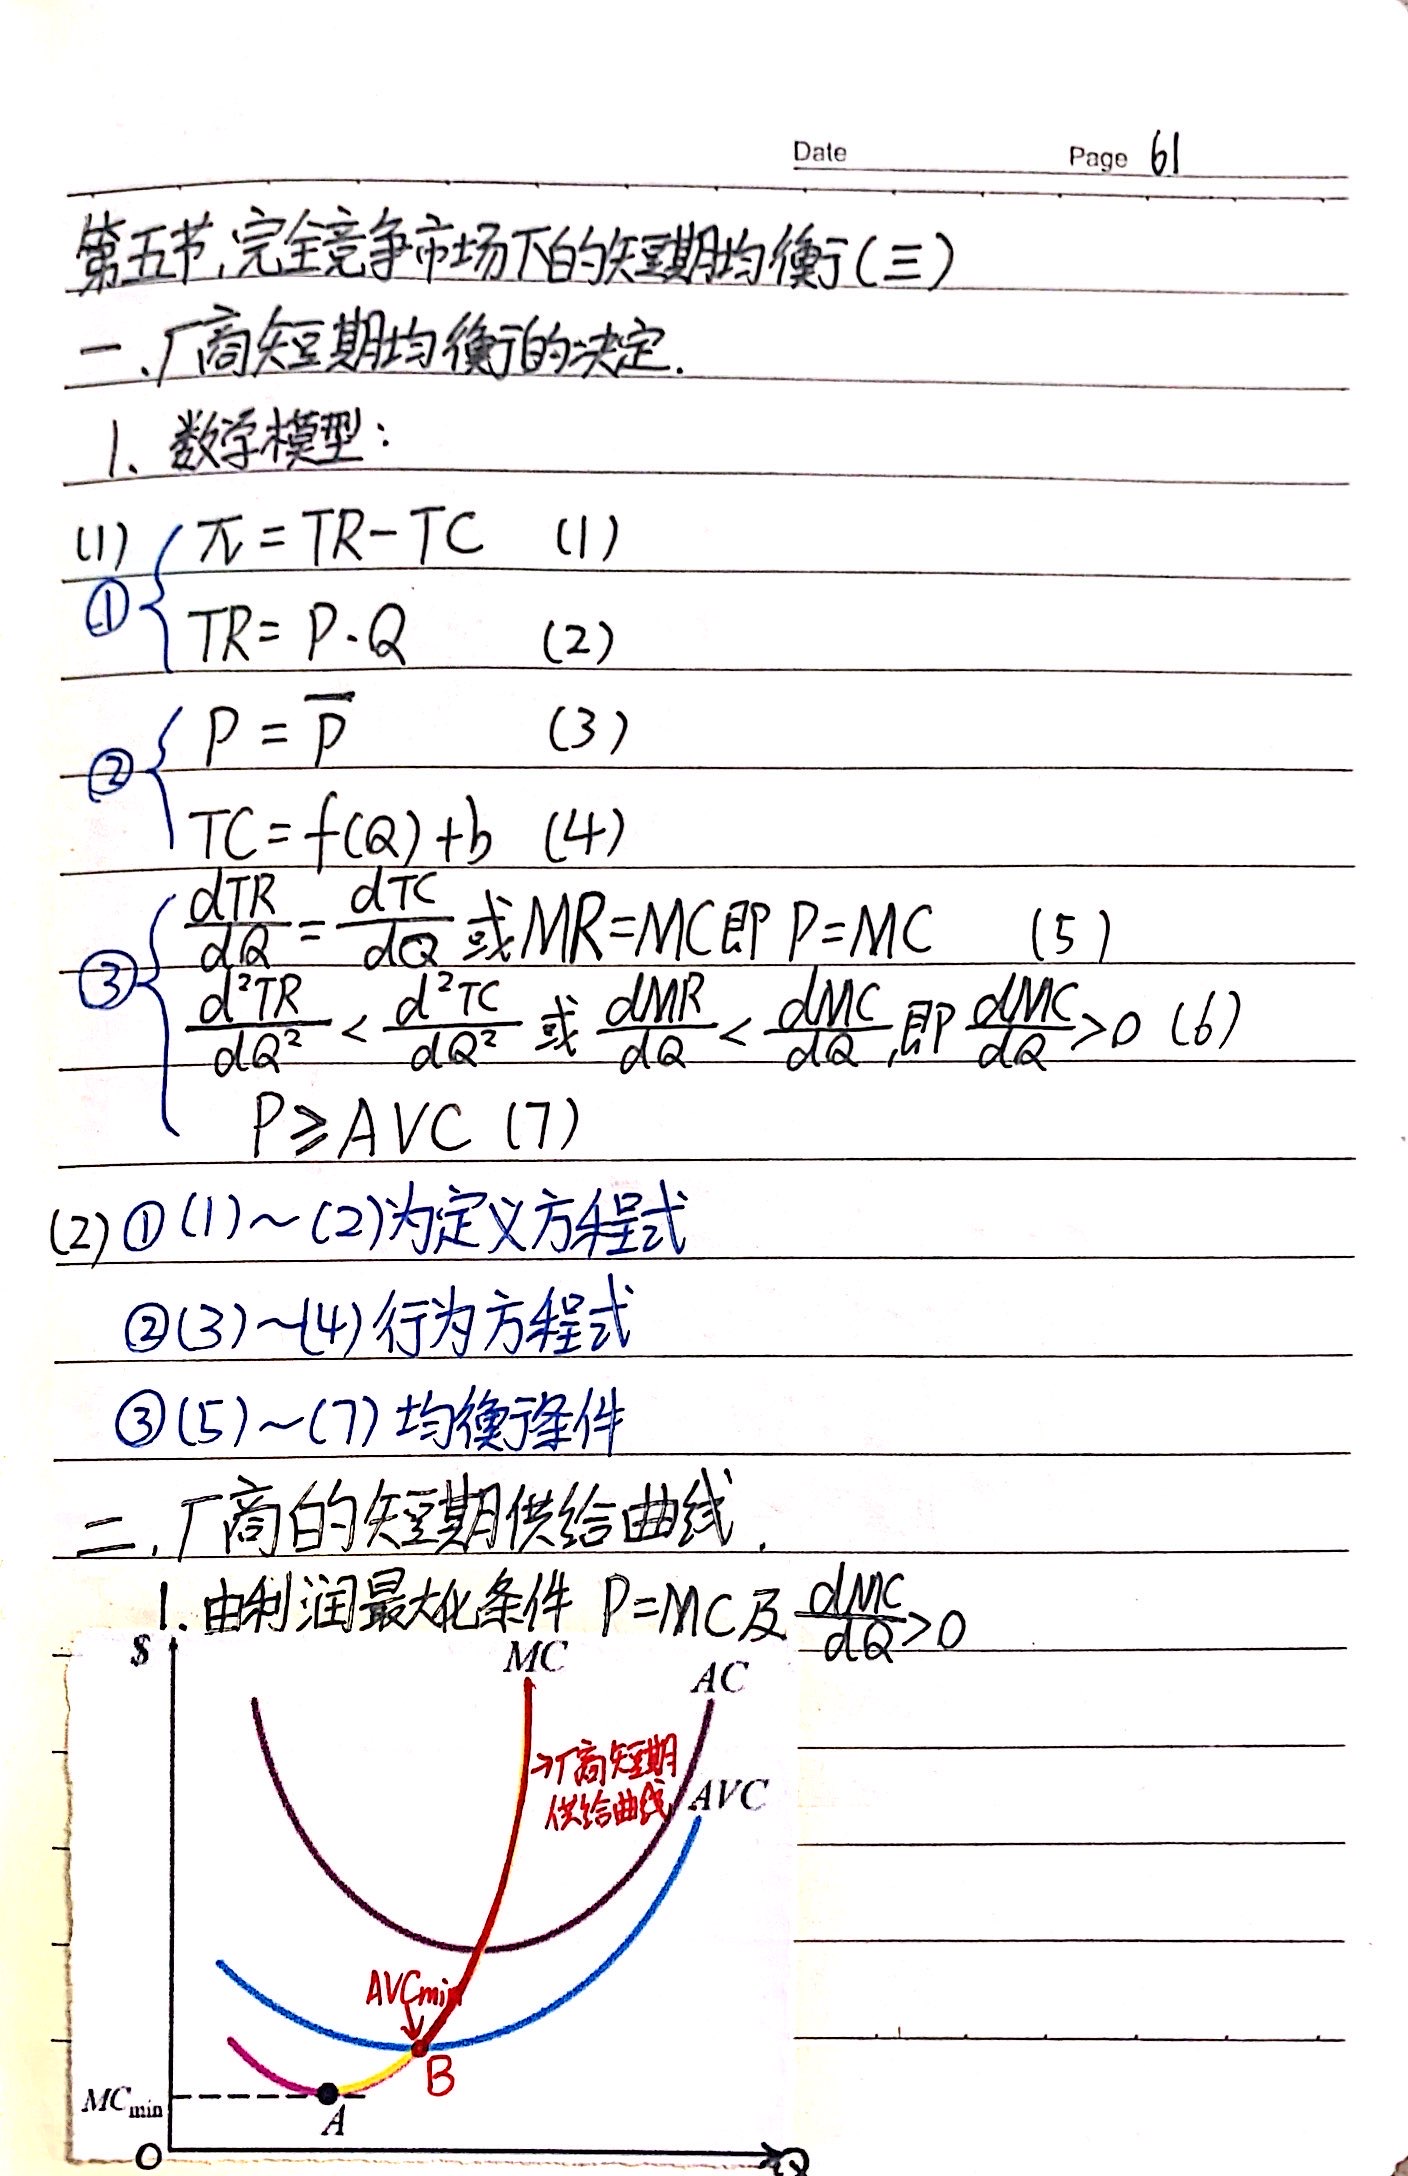 Date Page 61
第五节,完全竞争市场下的短期均衡(三)
一、厂商短期均衡的决定.
1、数学模型:
(1) π=TR-TC (1)
① TR=P·Q (2)
P=P̅ (3)
②
TC=f(Q)+b (4)
dTR/dQ=dTC/dQ 或MR=MC即P=MC (5)
③ d²TR/dQ²<d²TC/dQ² 或 dMR/dQ<dMC/dQ,即dMC/dQ>0 (6)
P≥AVC (7)
(2) ①(1)~(2)为定义方程式
②(3)~(4)行为方程式
③(5)~(7)均衡条件
二、厂商的短期供给曲线.
1.由利润最大化条件 P=MC及dMC/dQ>0
$ MC AC
→厂商短期
供给曲线
AVC
AVCmin
B
MCmin
A
O Q